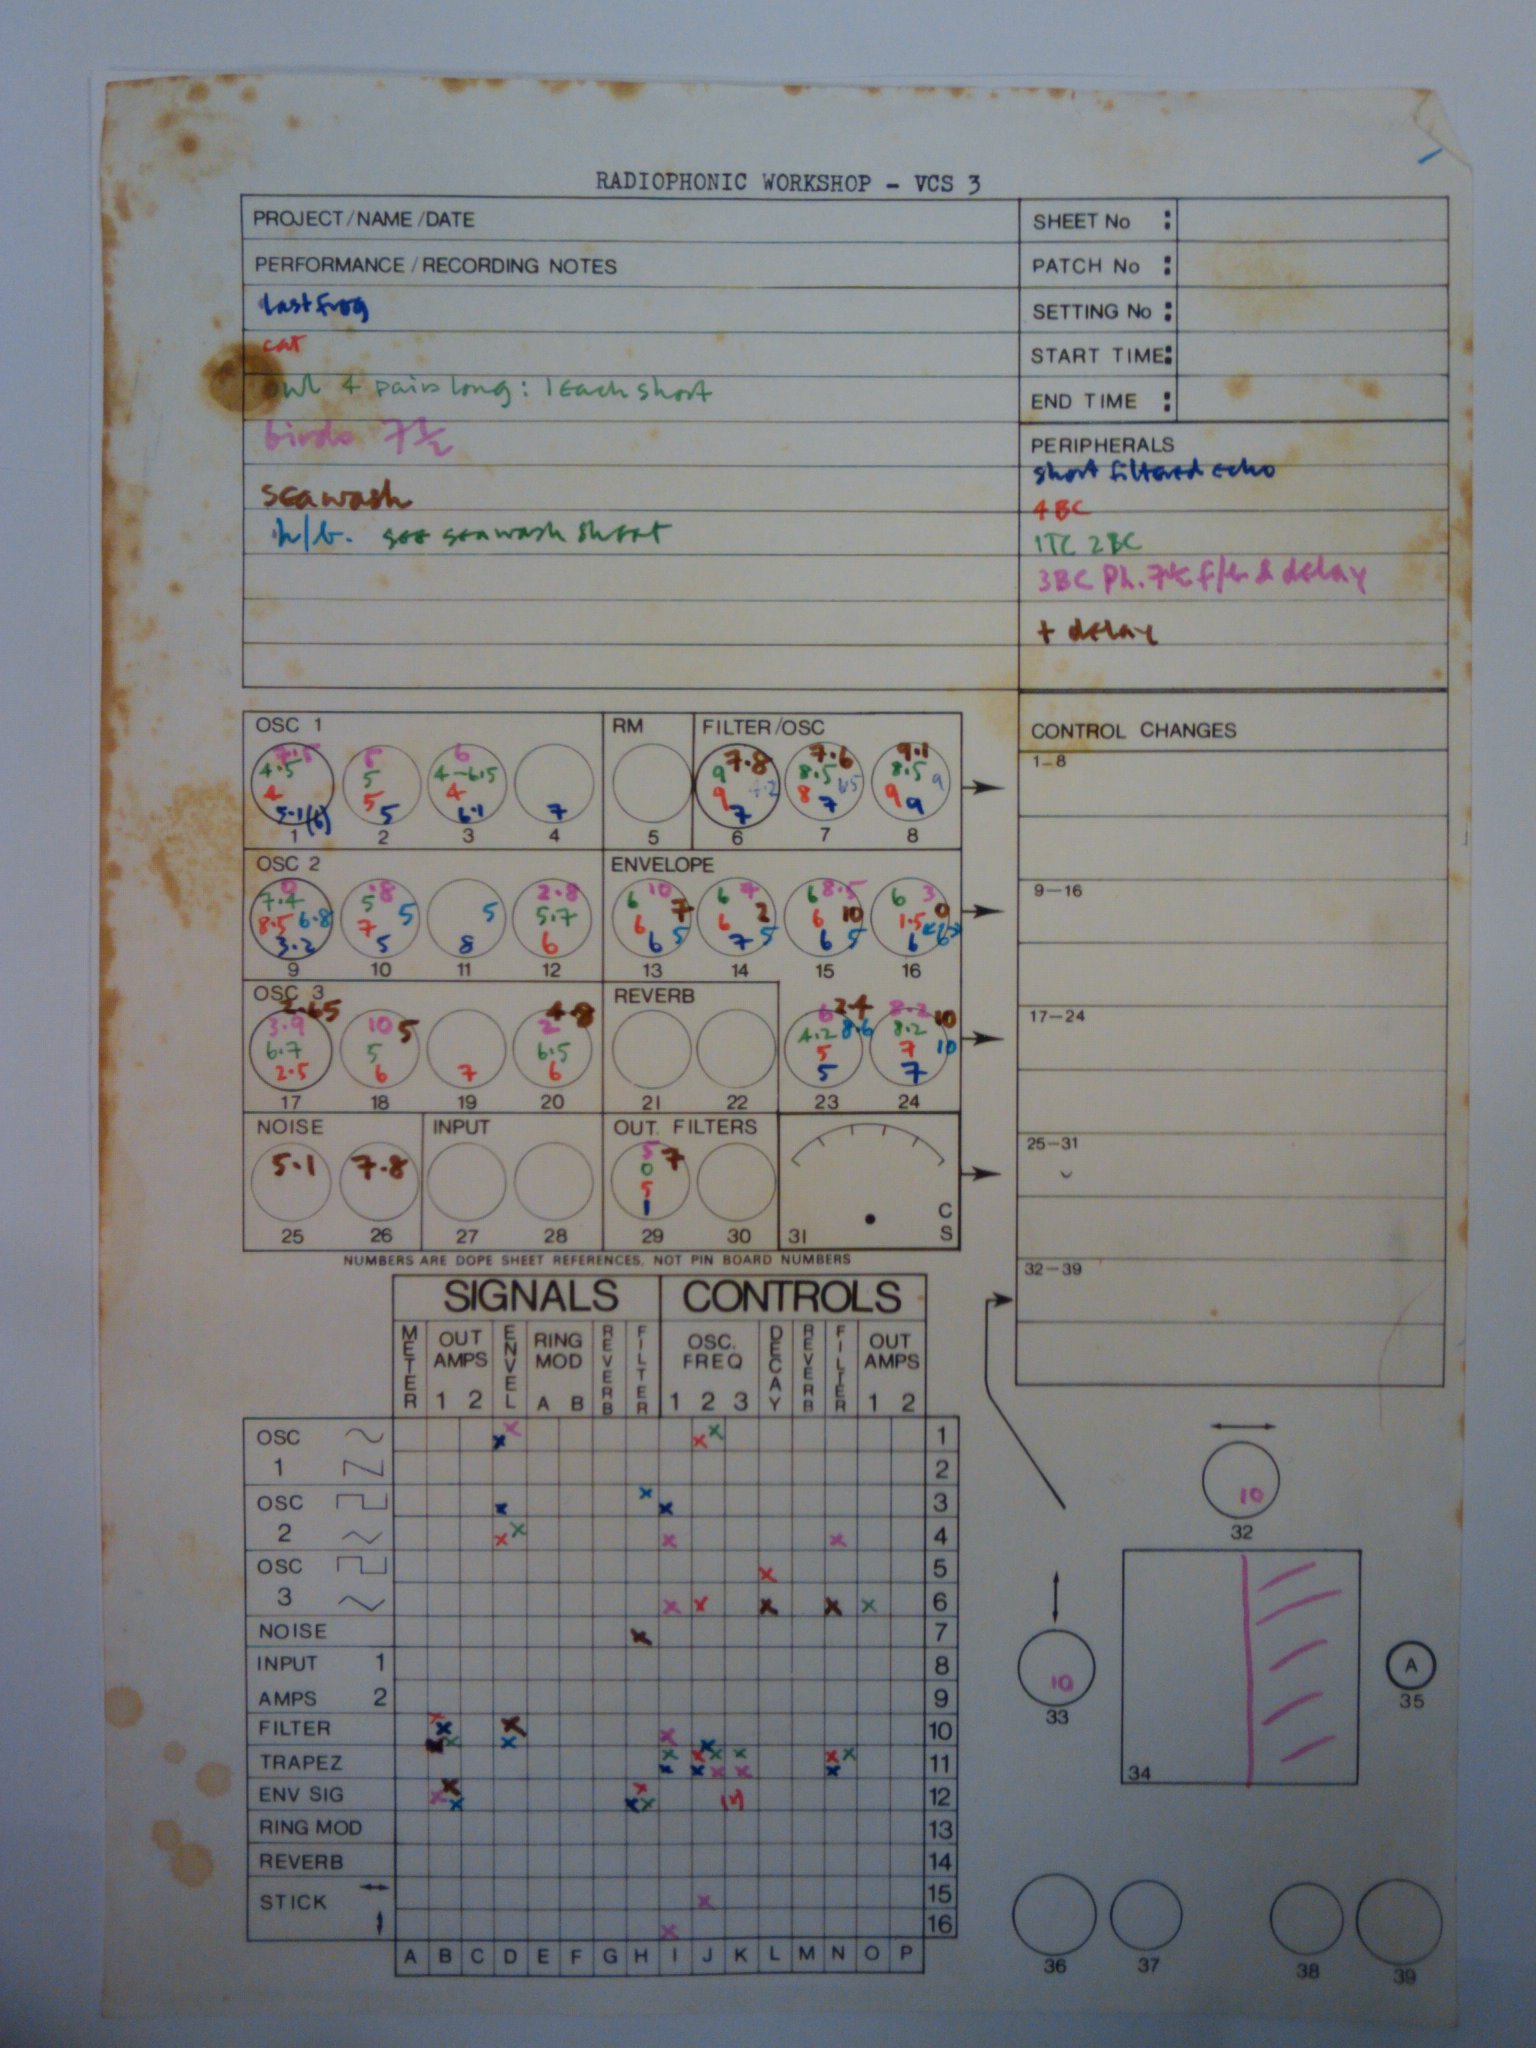 RADIOPHONIC WORKSHOP - VCS 3
PROJECT/NAME/DATE
SHEET No :
PERFORMANCE/RECORDING NOTES
PATCH No :
last frog
SETTING No :
cat
START TIME:
owl 4 pairs long: 1 each short
END TIME :
birds 7½
PERIPHERALS
short filtered echo
seawash
4BC
h/b. see seawash sheet
1TC 2BC
3BC Ph. f/b & delay
+ delay
OSC 1
RM
FILTER/OSC
CONTROL CHANGES
7.5 5 6 7.8 7.6 9.1
1-8
4.5 5 4-6.5 9 8.5 8.5 9
4 5 4 9 8 9
5.1(6) 5 6.1 7 7 7 9
1 2 3 4 5 6 7 8
OSC 2
ENVELOPE
9-16
0 .8 2.8 10 7 8.5 3
7.4 5 5 5 5.7 6 7 6 2 6 10 6 0
8.5 6.8 7 6 6 6 6 1.5
3.2 5 8 6 5 7 5 6 5 6
9 10 11 12 13 14 15 16
OSC 3
REVERB
17-24
2.65 4.8 6 2.4 8.2 10
3.9 10 5 2 4.2 8.6 8.2
6.7 5 6.5 5 7 10
2.5 6 7 6 5 7
17 18 19 20 21 22 23 24
NOISE
INPUT
OUT. FILTERS
25-31
5.1 7.8 5 7
0
5
1
C
S
25 26 27 28 29 30 31
NUMBERS ARE DOPE SHEET REFERENCES, NOT PIN BOARD NUMBERS
32-39
SIGNALS CONTROLS
METER
OUT AMPS 1 2
ENVEL
RING MOD A B
REVERB
FILTER
OSC. FREQ 1 2 3
DECAY
REVERB
FILTER
OUT AMPS 1 2
OSC 1
1
2
OSC 2
3
4
OSC 3
5
6
NOISE 7
INPUT 1 8
AMPS 2 9
FILTER 10
TRAPEZ 11
ENV SIG 12
RING MOD 13
REVERB 14
STICK 15
16
A B C D E F G H I J K L M N O P
10
32
10
33
34
A
35
36 37 38 39